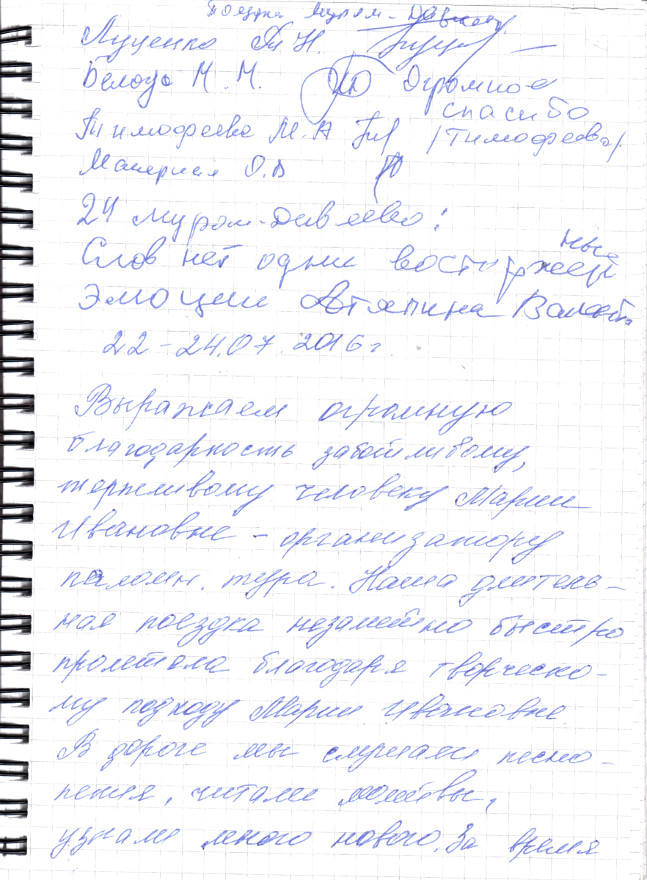 Поездка Муром-Дивеево
Луценко Т Н.
Белоус М. М. Огромное
спасибо
Тимофеева М. А /Тимофеева/
Мачерная О. В
24 Муром-Дивеево!
Слов нет одни восторженные
эмоции Атяпина Валент
22-24.07.2016 г.
Выражаем огромную
благодарность заботливому,
терпеливому человеку Марии
Ивановне - организатору
паломн. тура. Наша длитель-
ная поездка незаметно быстро
пролетела благодаря творческо-
му подходу Марии Ивановне.
В дороге мы слушали песно-
пения, читали молитвы,
узнали много нового. За время